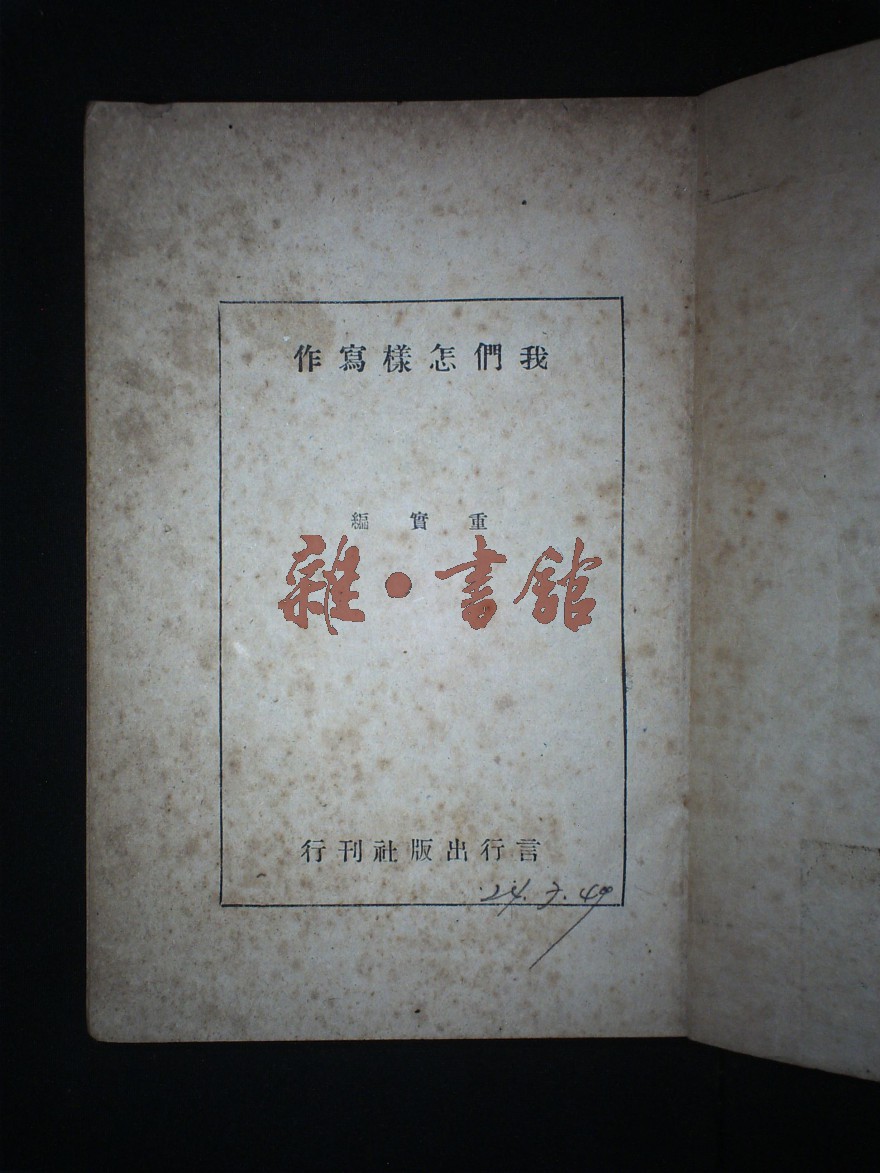 我們怎樣寫作
重實編
雜•書館
言行出版社刊行
24.3.49